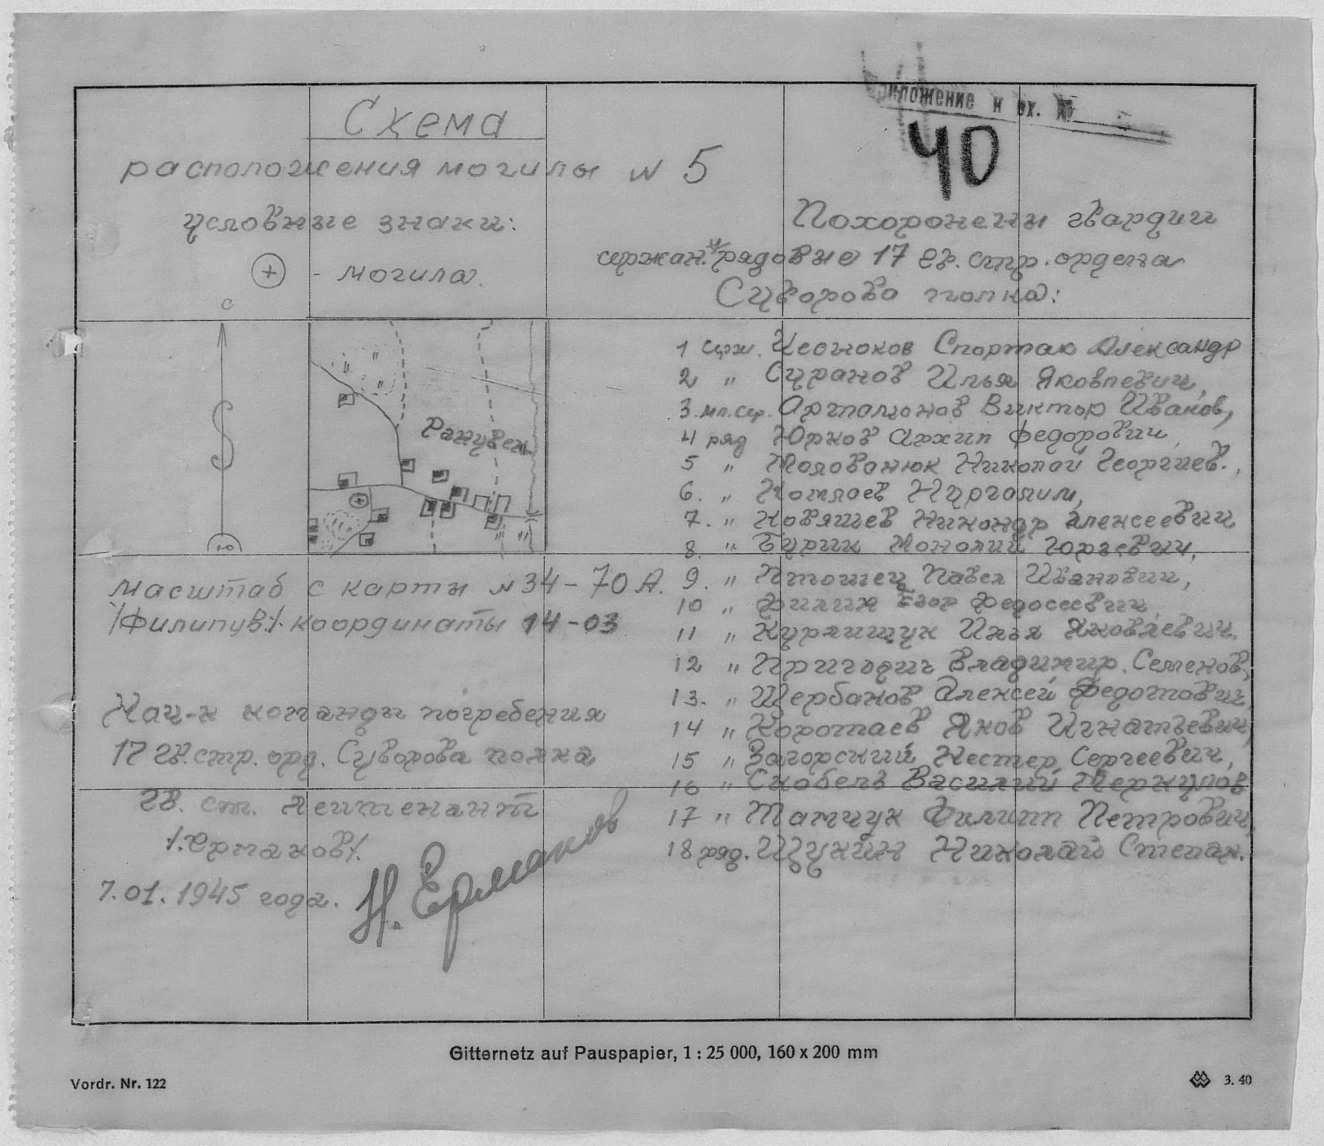 Приложение к вх. №
40
Схема
расположения могилы N 5
условные знаки:
+ - могила.
Похоронены гвардии
сержан. и рядовые 17 гв. стр. ордена
Суворова полка:
с
ю
Рапувен
1 серж. Спартак Александр
2 " Суранов Илья Яковлевич,
3. мл. сер. Артамонов Виктор Иванов,
4 ряд Юрков Архип Федорович,
5 " Молованюк Николай Георгиев.,
6. "
7. " Алексеевич
8. " Юрьевич,
9. " Павел Иванович,
10 " Филин Егор Федосеевич,
11 " Илья Яковлевич,
12 " Владимир. Семенов,
13. " Щербанов Алексей Федотович,
14 " Коротаев Яков Игнатьевич,
15 " Загорский Нестер Сергеевич,
16 " Скобель Василий Меркулов
17 " Тамчук Филипп Петрович,
18 ряд. Щукин Николай Степан.
масштаб с карты N 34-70 А.
/Филипув/. координаты 14-03
Нач-к команды погребения
17 гв. стр. орд. Суворова полка
гв. ст. лейтенант
/.Ермаков/.
7.01.1945 года.
Н. Ермаков
Gitternetz auf Pauspapier, 1 : 25 000, 160 x 200 mm
Vordr. Nr. 122
3. 40